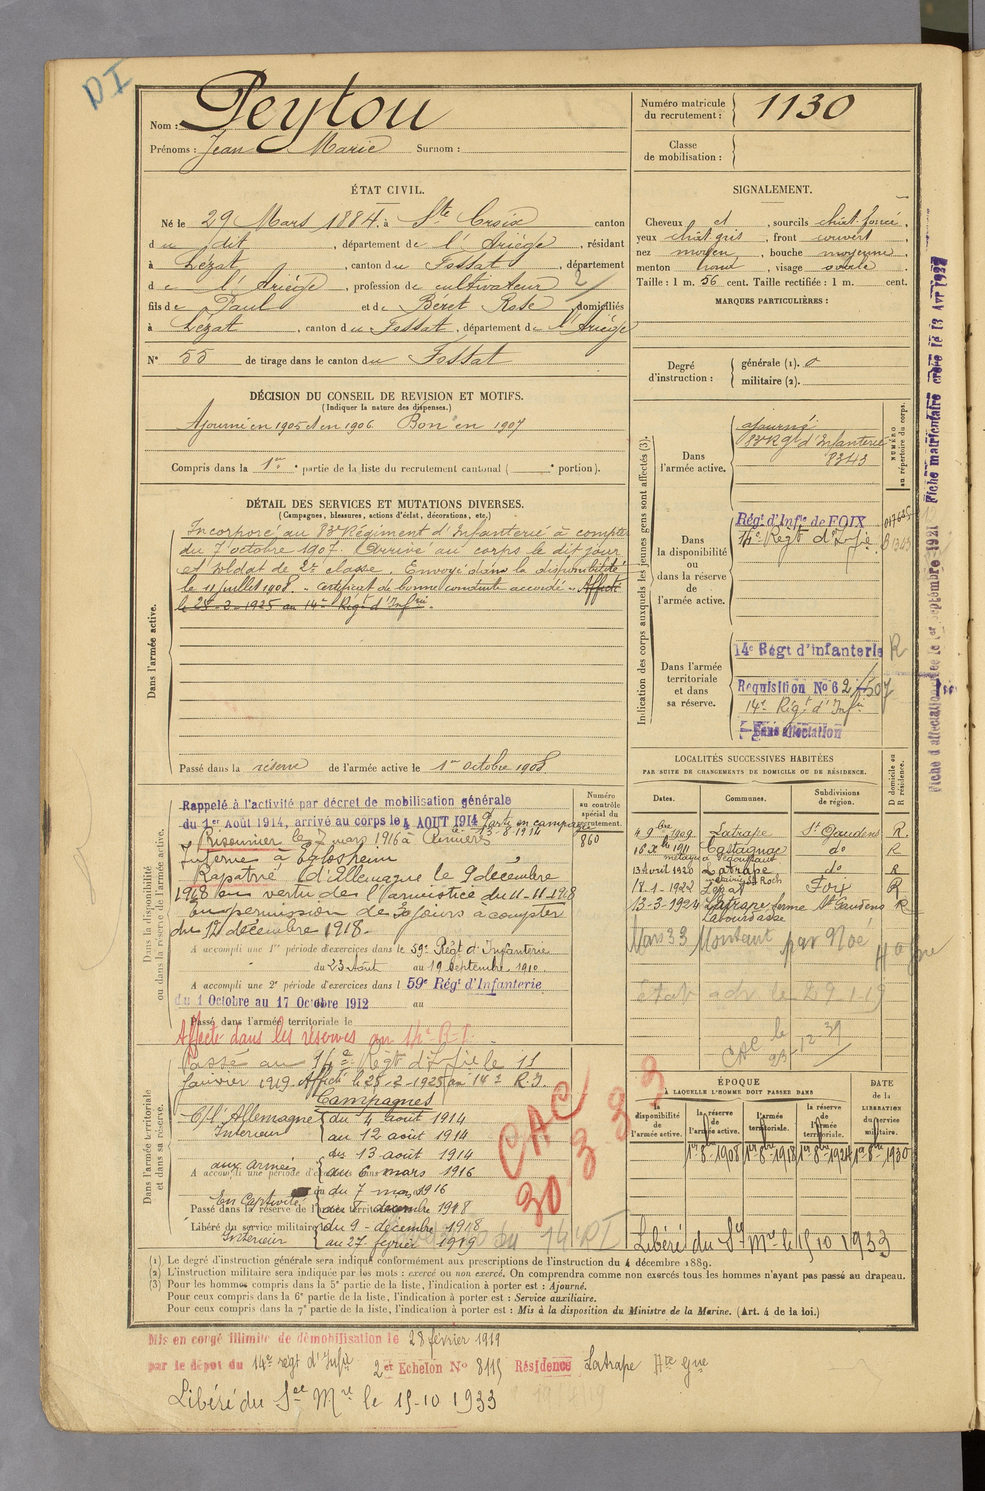 DI
Nom : Peytou
Prénoms : Jean Marie Surnom :
Numéro matricule
du recrutement : 1130
Classe
de mobilisation :
ÉTAT CIVIL.
Né le 29 Mars 1884, à Ste Croix canton
du dit, département de l'Ariège, résidant
à Lézat, canton du Fossat, département
de l'Ariège, profession de cultivateur 2/
fils de Paul et de Béret Rose, domiciliés
à Lézat, canton du Fossat, département de l'Ariège
N° 55 de tirage dans le canton du Fossat
SIGNALEMENT.
Cheveux et, sourcils chât. foncé,
yeux chât. gris, front couvert,
nez moyen, bouche moyenne,
menton rond, visage ovale
Taille : 1 m. 56 cent. Taille rectifiée : 1 m. cent.
MARQUES PARTICULIÈRES :
Degré
d'instruction :
générale (1). 0
militaire (2).
DÉCISION DU CONSEIL DE REVISION ET MOTIFS.
(Indiquer la nature des dispenses.)
Ajourné en 1905 et en 1906 Bon en 1907
Compris dans la 1re partie de la liste du recrutement cantonal ( portion).
DÉTAIL DES SERVICES ET MUTATIONS DIVERSES.
(Campagnes, blessures, actions d'éclat, décorations, etc.)
Dans l'armée active.
Incorporé au 83e Régiment d'Infanterie à compter
du 7 octobre 1907. Arrivé au corps le dit jour
et soldat de 2e classe. Envoyé dans la disponibilité
le 11 juillet 1908. - certificat de bonne conduite accordé - Affecté
le 25-2-1925 au 14e Régt d'Infrie.
Passé dans la réserve de l'armée active le 1er octobre 1908
Indication des corps auxquels les jeunes gens sont affectés (3).
NUMÉRO
au répertoire du corps.
Dans
l'armée active.
ajourné
83e Rgt d'Infanterie
8343
Dans
la disponibilité
ou
dans la réserve
de
l'armée active.
Régt d'Infie de FOIX
14e Régt d'Infie
Dans l'armée
territoriale
et dans
sa réserve.
14e Régt d'Infanterie R
Requisition No 6
14e Régt d'Infie
Sans affectation
Fiche matriculaire créée le 13 Avr 1927
LOCALITÉS SUCCESSIVES HABITÉES
PAR SUITE DE CHANGEMENTS DE DOMICILE OU DE RÉSIDENCE.
D domicile ou
R résidence.
Dates. Communes. Subdivisions
de région.
4 9bre 1909 Latrape St Gaudens R.
16 Xbre 1911 Castagnac do R
13 Avril 1920 Latrape do R
17-1-1922 Lézat Foix R
13-3-1924 Latrape ferme St Gaudens R
Labourdasse
Mars 33 Montaut par Noé Hte Gne
CAC le
Dans la disponibilité
ou dans la réserve de l'armée active.
Numéro
au contrôle
spécial du
recrutement.
860
Rappelé à l'activité par décret de mobilisation générale
du 1er Août 1914, arrivé au corps le 4 AOUT 1914 Parti en campagne
13-8-1914
Prisonnier le 7 mars 1916 à Cumières
Interné à Eglosheim
Rapatrié d'Allemagne le 9 décembre
1918 en vertu de l'armistice du 11-11-1918
En permission de 30 jours à compter
du 14 décembre 1918.
A accompli une 1re période d'exercices dans le 59e Régt d'Infanterie
du 23 Août au 19 Septembre 1910.
A accompli une 2e période d'exercices dans l 59e Régt d'Infanterie
du 1 Octobre au 17 Octobre 1912 au
Passé dans l'armée territoriale le
Affecté dans les réserves au 14e R.I.
Dans l'armée territoriale
et dans sa réserve.
Passé au 14e Régt d'Infie le 11
Janvier 1919. Affecté le 25-2-1925 au 14e R.I.
Campagnes
C/ l'Allemagne du 4 août 1914
Intérieur au 12 août 1914
aux armées du 13 août 1914
A accompli une période d'exercices dans au 6 mars 1916
du 7 mars 1916
En captivité au 8 décembre 1918
Passé dans la réserve de l'armée territoriale
Libéré du service militaire du 9 décembre 1918
Intérieur au 27 février 1919
CAC 33
30 3
ÉPOQUE
À LAQUELLE L'HOMME DOIT PASSER DANS
DATE
de la
LIBÉRATION
du service
militaire.
la
disponibilité
de
l'armée active.
la réserve
de
l'armée active.
l'armée
territoriale.
la réserve
de
l'armée
territoriale.
1er 8bre 1908 1er 8bre 1918 1er 8bre 1924 1er 8bre 1930
Libéré du Sce Mre le 15 10 1933
(1) Le degré d'instruction générale sera indiqué conformément aux prescriptions de l'instruction du 4 décembre 1889.
(2) L'instruction militaire sera indiquée par les mots : exercé ou non exercé. On comprendra comme non exercés tous les hommes n'ayant pas passé au drapeau.
(3) Pour les hommes compris dans la 5e partie de la liste, l'indication à porter est : Ajourné.
Pour ceux compris dans la 6e partie de la liste, l'indication à porter est : Service auxiliaire.
Pour ceux compris dans la 7e partie de la liste, l'indication à porter est : Mis à la disposition du Ministre de la Marine. (Art. 4 de la loi.)
Mis en congé illimité de démobilisation le 28 février 1919
par le dépôt du 14e régt d'Infie 2e Echelon No 8115 Résidence Latrape Hte Gne
Libéré du Sce Mre le 15-10 1933